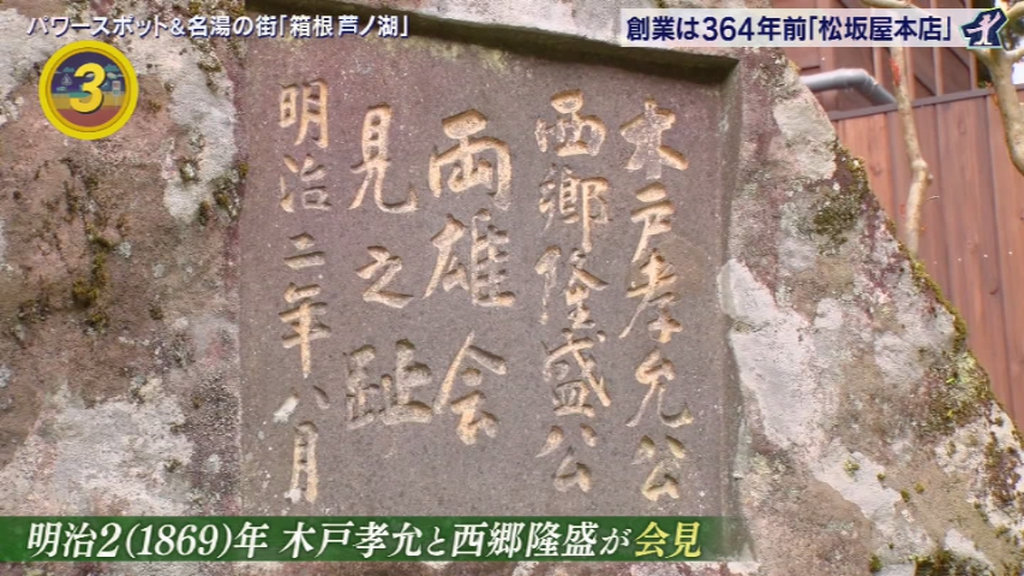 パワースポット&名湯の街「箱根 芦ノ湖」
創業は364年前「松坂屋本店」
3
木戸孝允公
西郷隆盛公
両雄会
見之趾
明治二年八月
明治2(1869)年 木戸孝允と西郷隆盛が会見